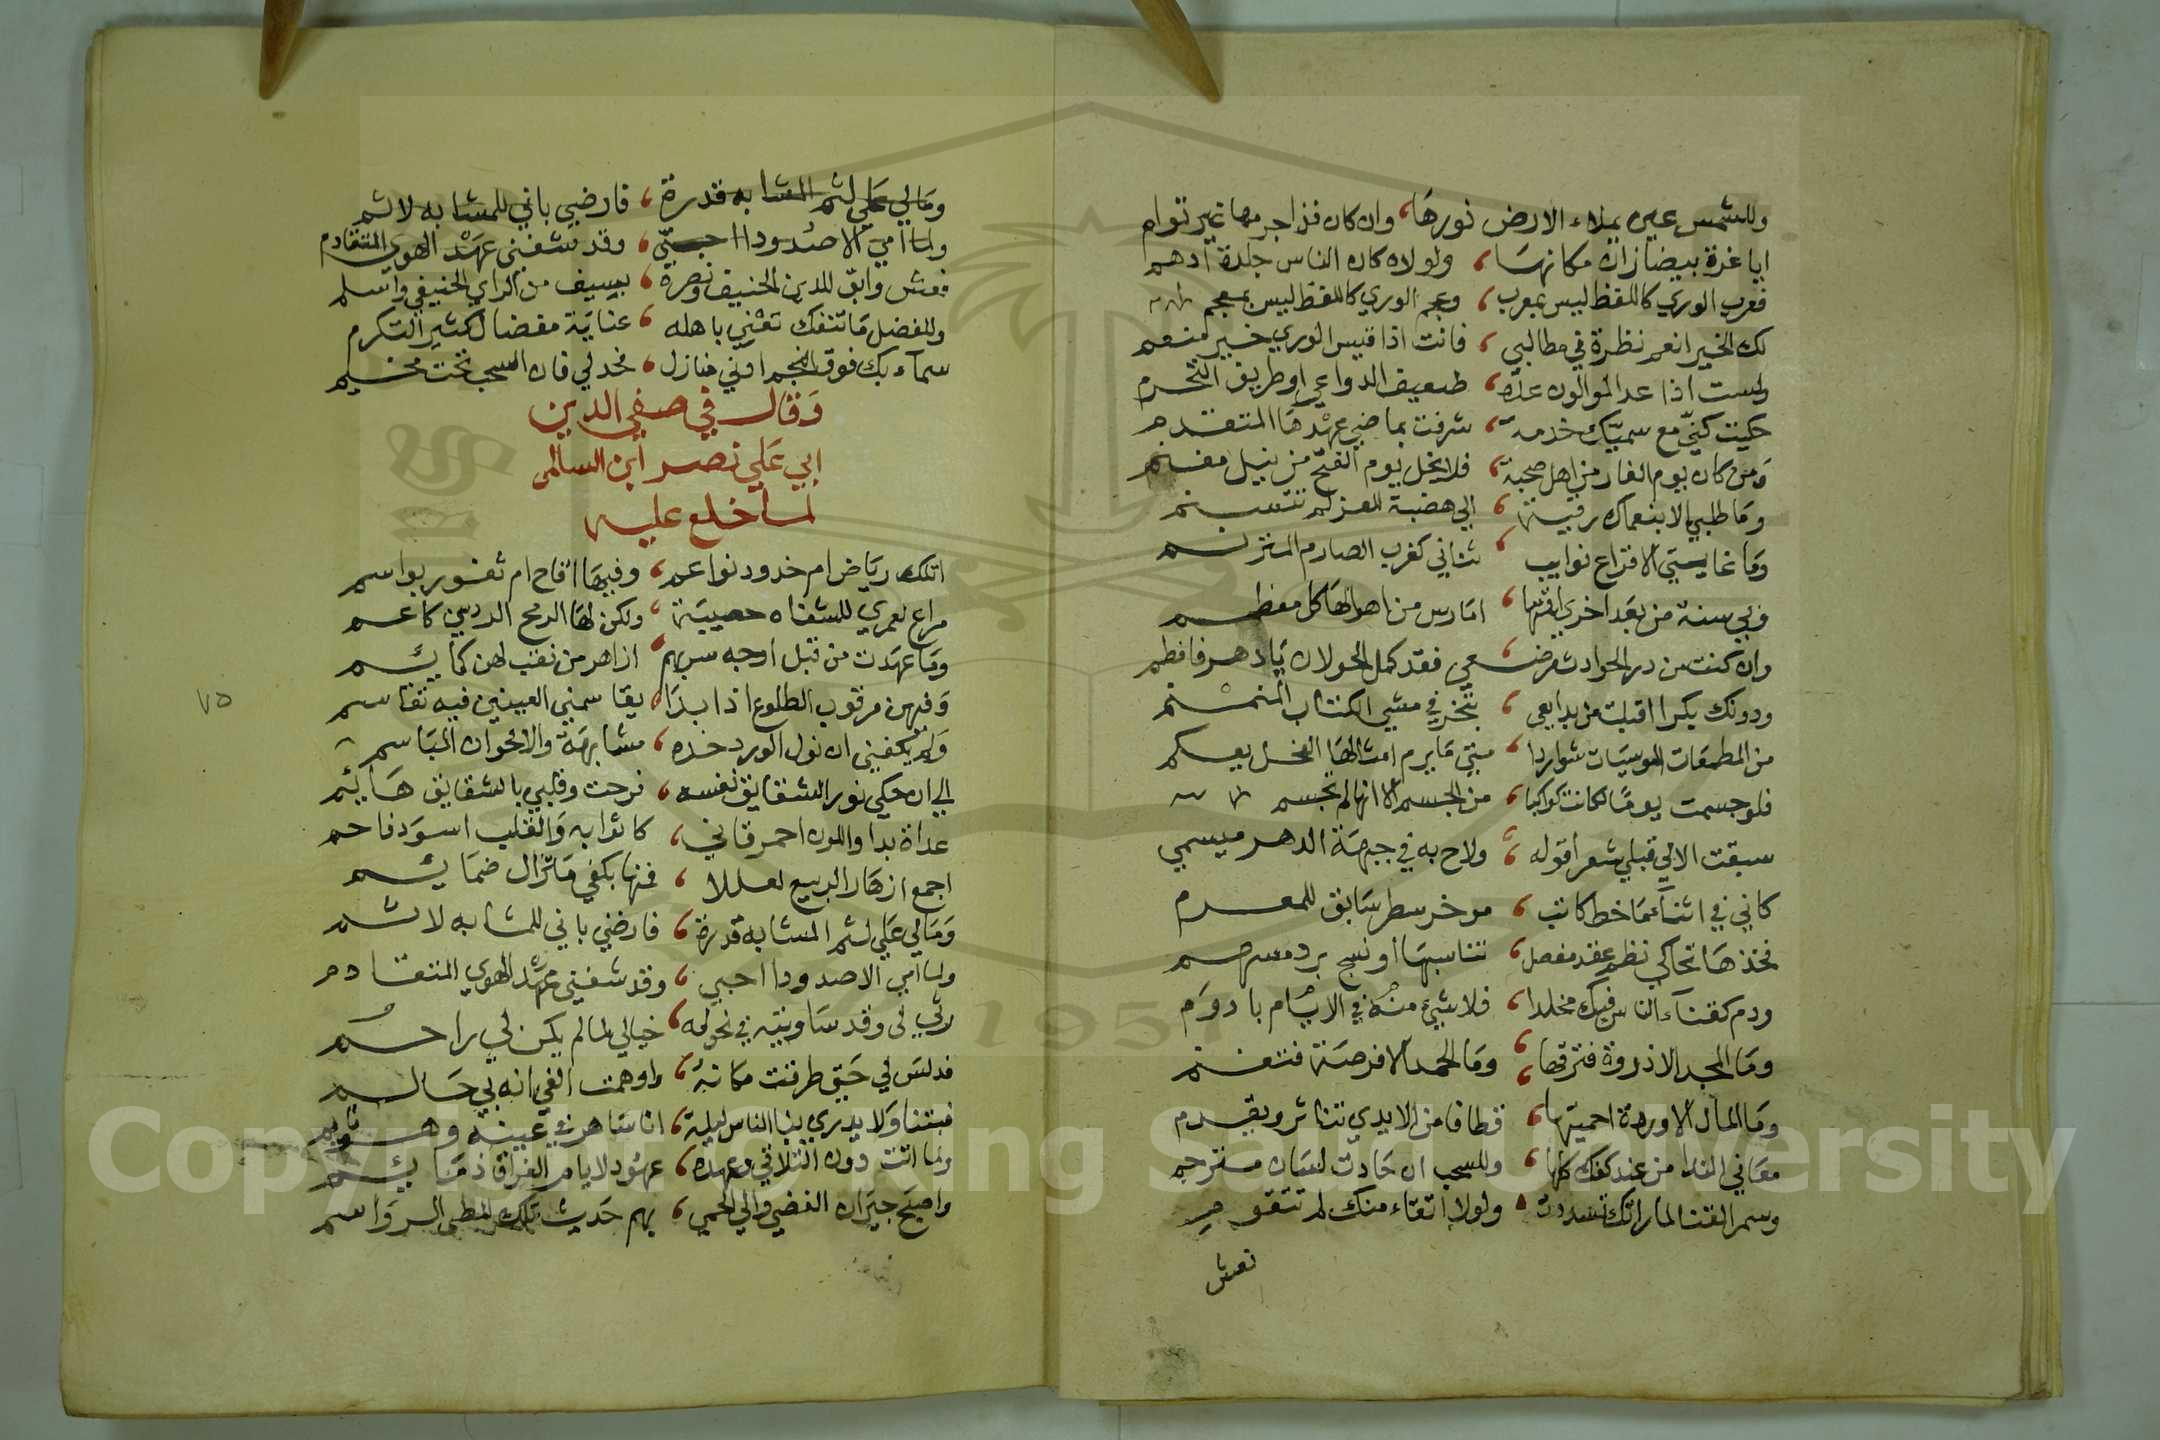 وللشمس عين يملاء الارض نورها، وان كان فذا جرمها غير توام
ايا غرة بيضا زان مكانها، ولولاه كان الناس جلدة ادهم
فعرب الوري كاللفظ ليس بمعرب، وعجم الوري كاللفظ ليس بمعجم
لك الخير انعم نظرة في مطالبي، فانت اذا قيس الوري خير منعم
ولست اذا عد الموالون علاه، ضعيف الدواعي او طريف التحرم
حكيت كنيّ مع سميّك خدمة، شرفت بماضي عهدها المتقدم
ومن كان يوم الغار من اهل صحبة، فلا يخل يوم الفتح من نيل مغنم
وما طلبي الا بنعماك رقية، الي هضبة للعز لم تتسنم
وما غايتي الا قراع نوايب، ثناني كغرب الصارم المتثلم
وفي سنة من بعد اخري اقمتها، امارس من اهوالها كل معظم
وان كنت من در الحوادث مرضعي، فقد كمل الحولان يا دهر فافطم
ودونك بكرا اقبلت من بدايعي، تبختر في مشي الكتاب المنمنم
من المطمعات الموسيات شواردا، متي ما يرم امثالها الفحل يعكم
فلو جسمت يوما لكانت كواكبا، من الجسم الا انها لم تجسم
سبقت الالي قبلي بشعر اقوله، ولاح به في جبهة الدهر ميسمي
كاني في اثناء ما خط كاتب، موخر سطر سابق للمقدم
فخذها تحاكي نظم عقد مفصل، تناسبها او نسج برد مسهم
ودم كثناء الناس فيك مخلدا، فلا شيء منه في الايام بادوم
وما المجد الا ذروة فترقها، وما الحمد الا فرصة فتغنم
وما المال الا وردة احميتها، قطافا من الايدي تناثر ويقدم
معاني الندا من عند كفك كلها، وللسحب ان جادت لسان مترجم
وسمر القنا لما راتك تسددت، ولولا اتقاء منك لم تتقوم
نعش
ومالي علي لثم المشابه قدرة، فارضي باني للمشابه لاثم
ولما ابي الا صدودا احبتي، وقد شفني عهد الهوي المتقادم
فعش وابق للدين الحنيف ونصرة، بسيف من الراي الحنيفي واسلم
وللفضل ما تنفك تعني باهله، عناية مفضال كثير التكرم
سماء بك فوق النجم اوفي منازل، فخد لي فان السحب تحت مخيم
وقال في صفي الدين
ابي علي نصر ابن السالم
لما خلع عليه
اتلك رياض ام خدود نواعم، وفيها اقاح ام ثغور بواسم
مراع لعمري للشفاه حصيبة، ولكن لها الرمح الرديني كاعم
وما عهدت من قبل اوجه سربهم، ازاهر من نقب لهن كمايم
وفيهن مرقوب الطلوع اذا بدا، يقاسمني العينين فيه تقاسم
ولم يكفني ان نول الورد خده، مشابهة والاقحوان المباسم
الي ان حكي نور الشقايق نفسه، فرحت وقلبي بالشقايق هايم
غداة بدا واللون احمر قاني، كانوا به والقلب اسود فاحم
اجمع ازهار الربيع تعللا، فمنها بكفي ما تزال ضمايم
ومالي علي لثم المشابه قدرة، فارضي باني للمشابه لاثم
ولما ابي الا صدودا احبي، وقد شفني عهد الهوي المتقادم
رثي لي وقد ساويته في نحوله، خيالي لما لم يكن لي راحم
فدلس لي حتي طرقت مكانه، واوهمت الفي انه بي حالم
فبتنا ولا يدري بنا الناس ليلة، انا ساهر في عينه وهو نايم
ولما اتت دون التلاقي وعهده، عهود لايام الفراق ذمايم
واصبح جيران الغضي والي الحمي، بهم حديث تلك المطي الرواسم
٧٥
Copyright © King Saud University
1957